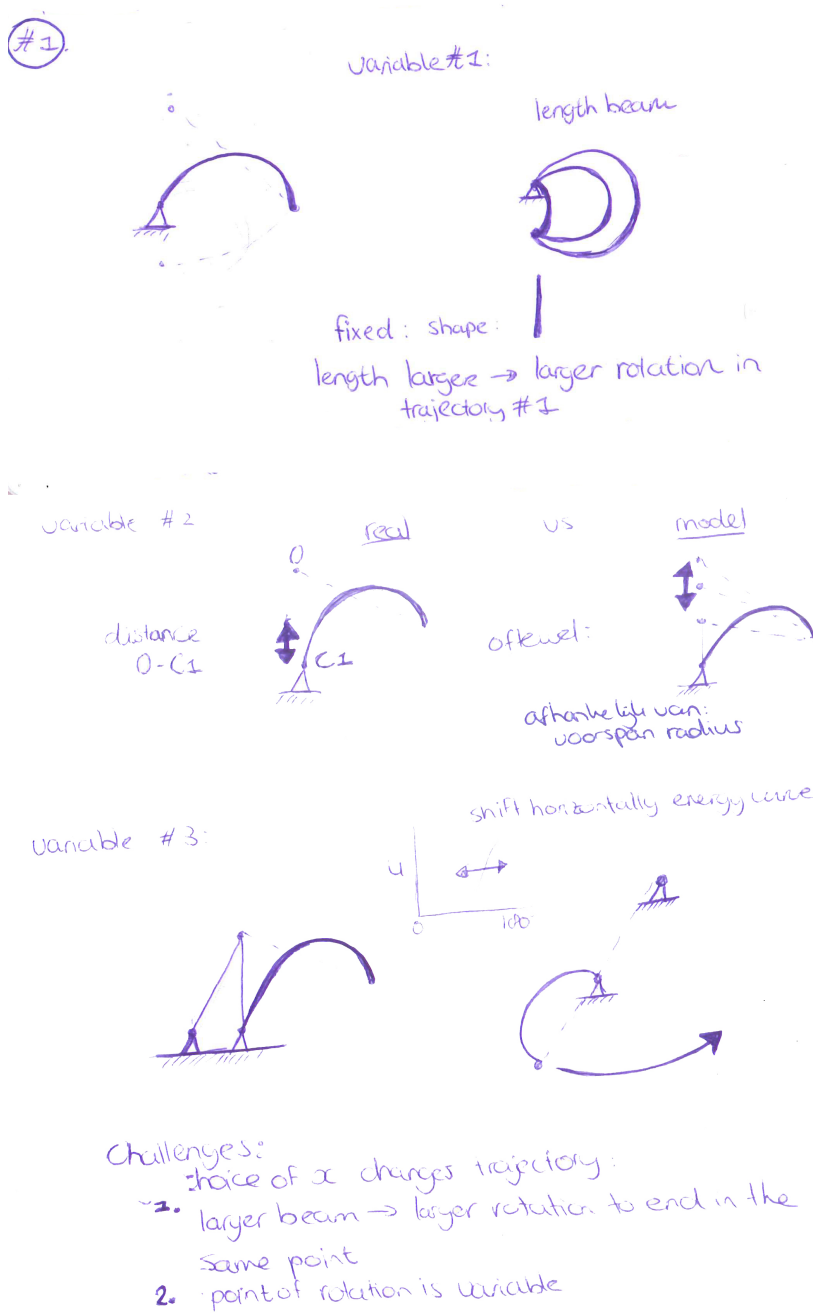 #1.
variable #1:
length beam
fixed: shape:
length larger → larger rotation in
trajectory #1
variable #2
real
vs
model
O
distance
O-C1
C1
oftewel:
afhankelijk van:
voorspan radius
shift horizontally energy curve
variable #3:
u
0
180
Challenges:
choice of x changes trajectory:
1.
larger beam → larger rotation to end in the
same point
2. point of rotation is variable